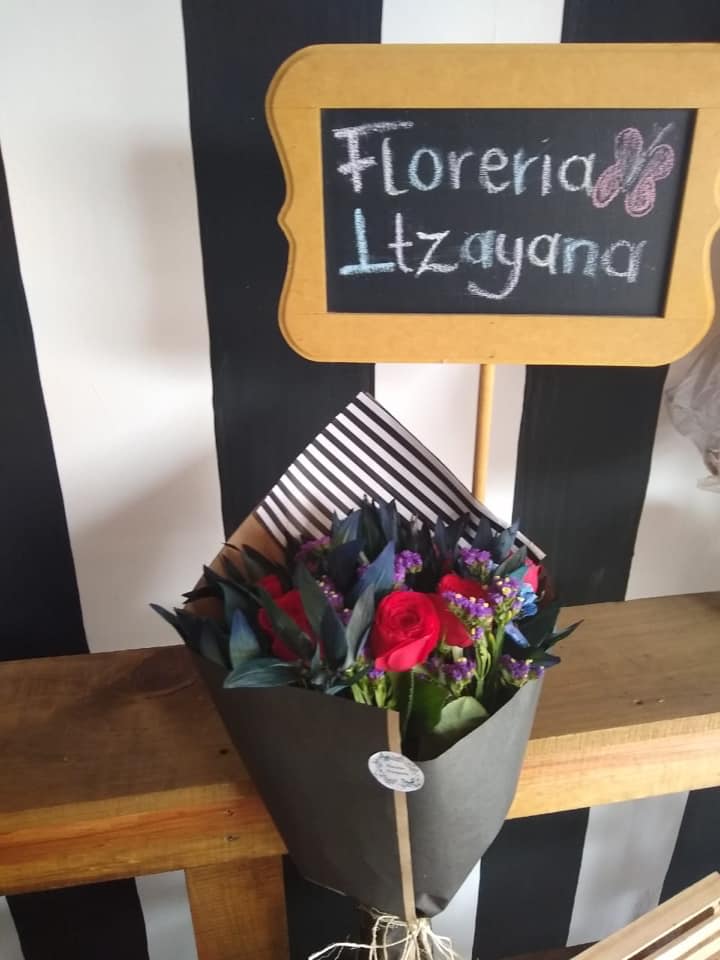 Florería
Itzayana